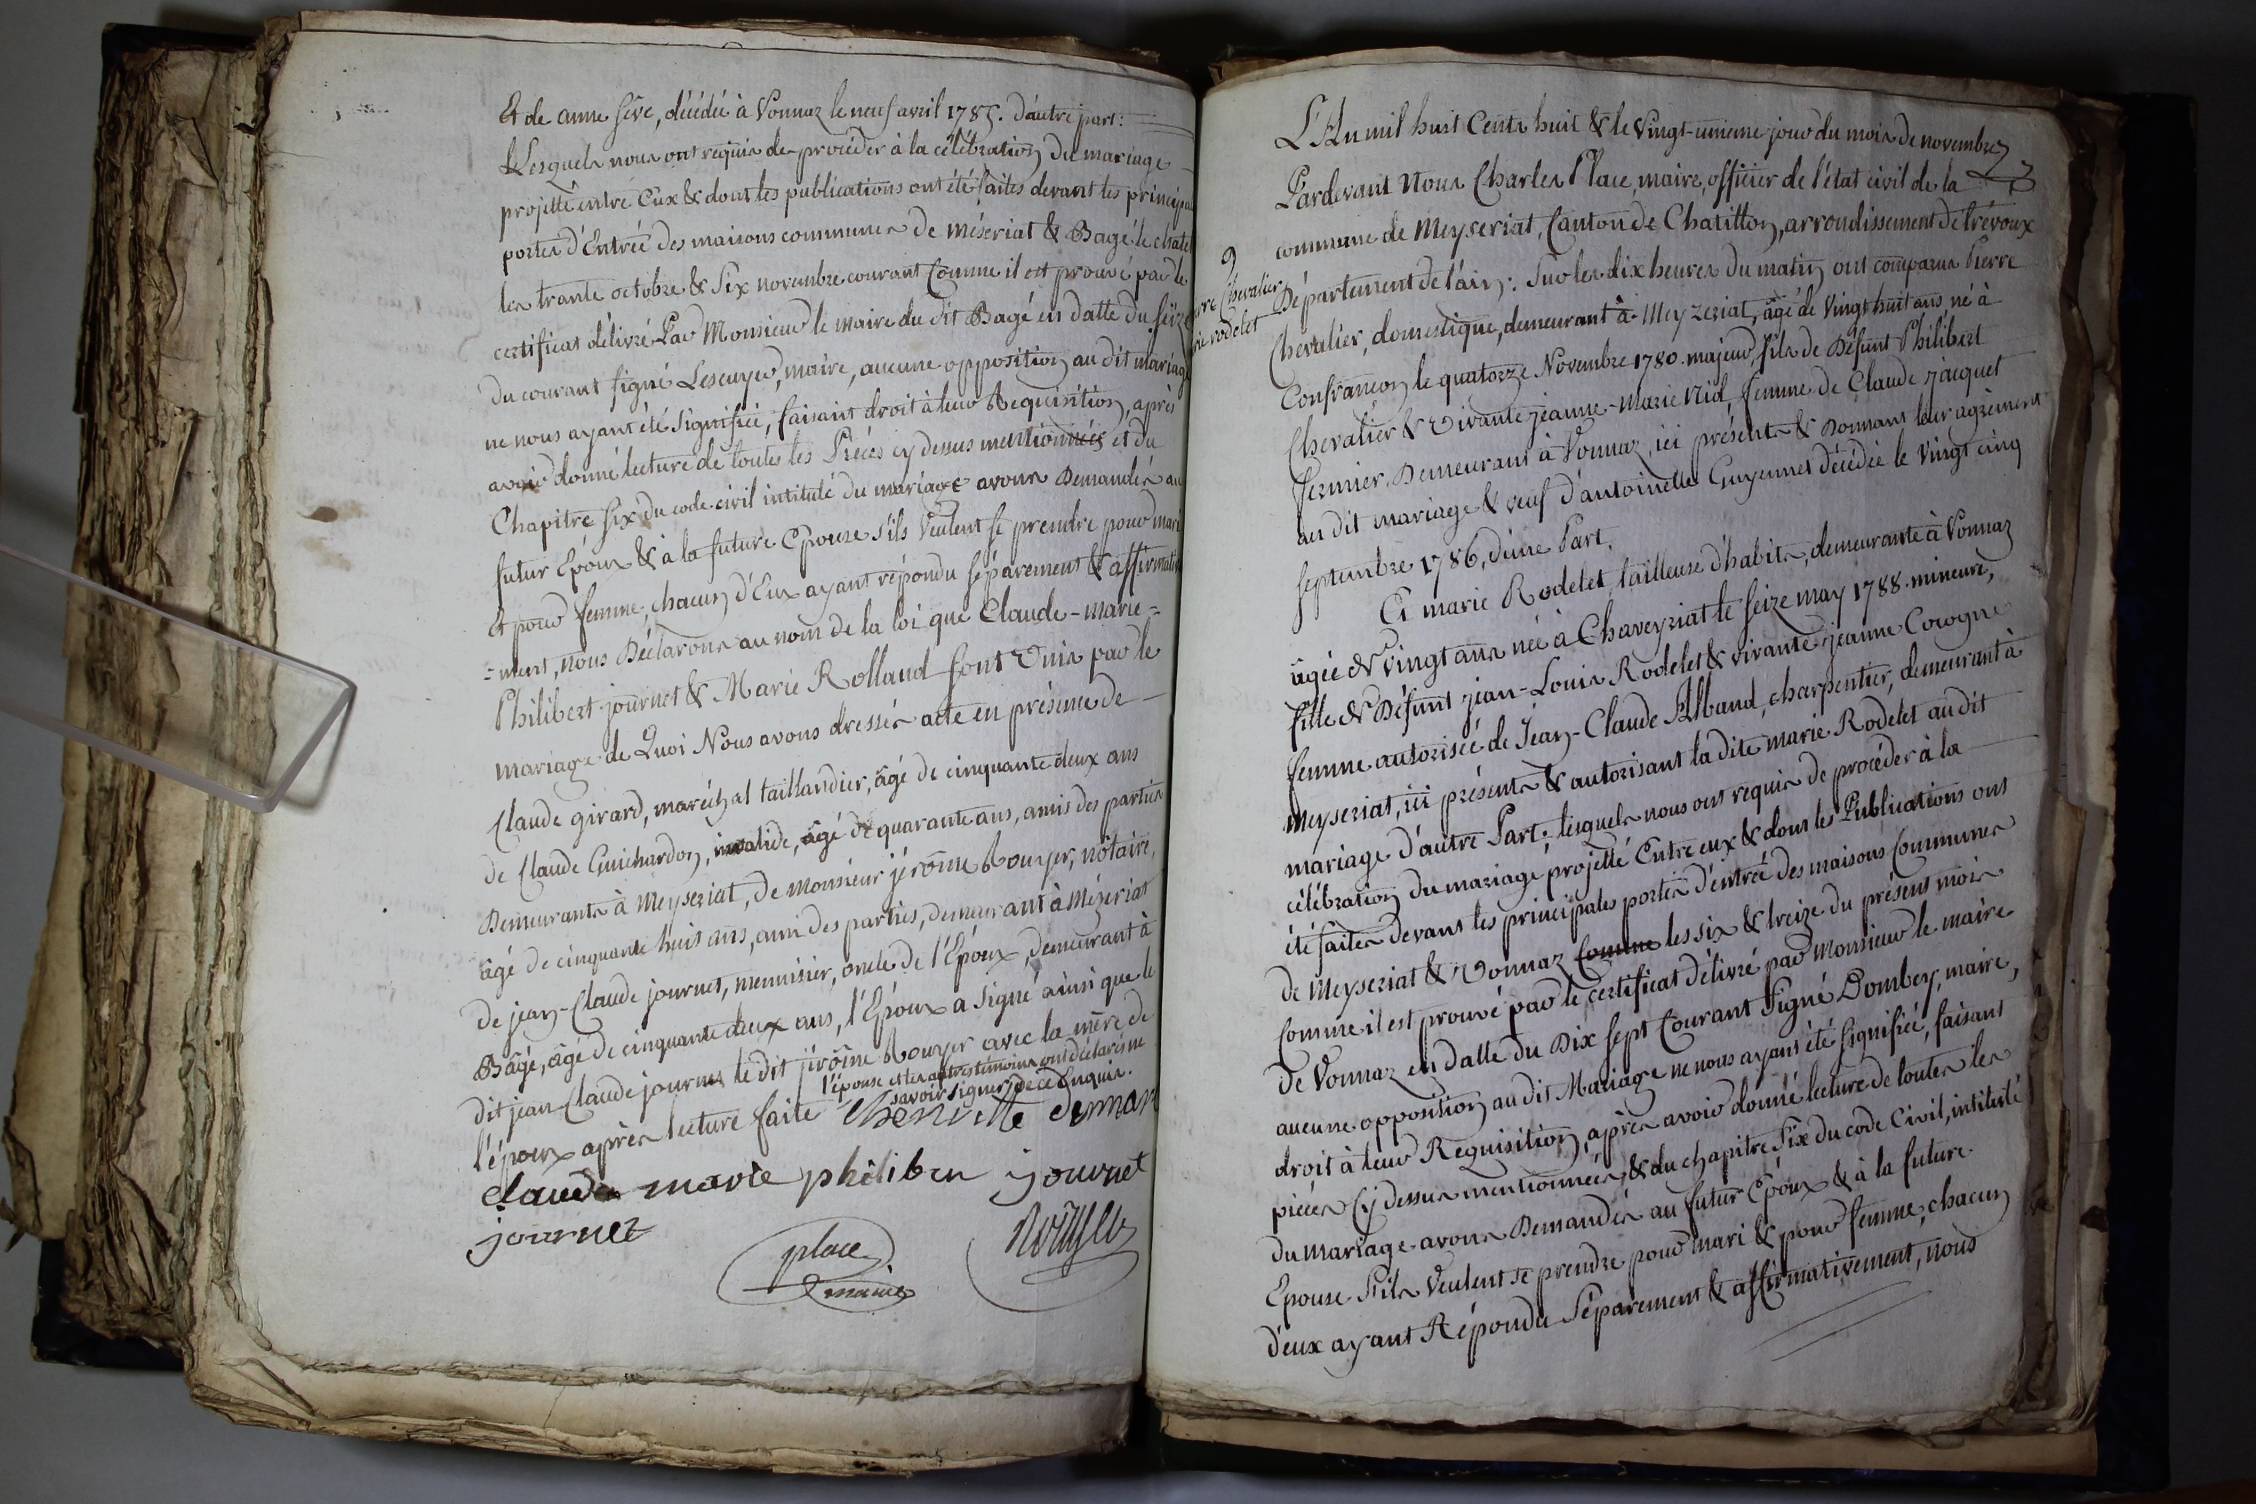 Et de anne sève, décédée à Vonnaz le neuf avril 1785. d'autre part:
Lesquels nous ont requis de procéder à la célébration du mariage
projetté entre Eux & dont les publications ont été faites devant les principa
portes d'Entrée des maisons communes de méseriat & Bagé-le chatel
les trante octobre & Six novembre courant Comme il est prouvé par le
certificat délivré Par Monsieur le maire du dit Bagé en datte du seize
du courant signé Lescuyer, maire, aucune opposition au dit mariage
ne nous ayant été signifiée, faisant droit à leur Requisition, après
avoir donné lecture de toutes les Pièces cy dessus mentionnées et du
Chapitre six du code civil intitulé du mariage avons Demandés au
futur Epoux & à la future Epouse s'ils veulent se prendre pour mari
Et pour femme, chacun d'Eux ayant répondu séparement & affirmative
=ment, nous Déclarons au nom de la loi que Claude-marie=
Philibert journet & Marie Rolland sont Unis par le
mariage de Quoi Nous avons dressés acte en présence de
Claude girard, maréchal taillandier, âgé de cinquante deux ans
de Claude Guichardon, invalide, âgé de quarante ans, amis des parties
Demeurants à Meyseriat, de Monsieur jérôme Rouyer, notaire,
âgé de cinquante huit ans, ami des parties, demeurant à Mézériat
de jean-Claude journet, menuisier, oncle de l'Epoux, demeurant à
Bâgé, âgé de cinquante deux ans, l'Epoux a signé ainsi que le
dit jean-Claude journet le dit jérôme Rouyer avec la mère de
l'épouse et les autres témoins ont déclarés ne
savoir signer de ce Enquis.
l'époux après lecture faite
Claude marie philiber journet
journet
place
maire
Rouyer
L'An mil huit Cents huit & le Vingt-unieme jour du mois de novembre
Pardevant Nous Charles Place, maire, officier de l'état civil de la
commune de Meyseriat, Canton de Chatillon, arrondissement de trévoux
9
Chevalier
rodelet
Département de l'ain: Sur les dix heures du matin ont comparus Pierre
Chevalier, domestique, demeurant à Meyzeriat, âgé de vingt huit ans né à
Confrançon le quatorze Novembre 1780. majeur, fils de Défunt Philibert
Chevalier & Vivante jeanne-Marie Nid, femme de Claude jacquet
fermier, Demeurans à Vonnaz, ici présents & Donnans leur agrément
au dit mariage & veuf d'antoinette Guyennet décédée le vingt cinq
septembre 1786, d'une Part.
Et marie Rodelet, tailleuse d'habits, demeurante à Vonnaz
âgée de vingt ans née à Chaveyriat le seize may 1788. mineure,
fille de Défunt jean-Louis Rodelet & vivante jeanne Cocogne
femme autorisée de Jean-Claude Alband, charpentier, demeurant à
Meyseriat, ici présents & autorisant la dite marie Rodelet au dit
mariage d'autre Part; lesquels nous ont requis de procéder à la
célébration du mariage projetté Entre eux & dont les Publications ont
été faites devant les principales portes d'entrée des maisons Communes
de Meyseriat & Vonnaz Comme les six & treize du présent mois
Comme il est prouvé par le certificat délivré par Monsieur le maire
de Vonnaz en datte du Dix sept Courant signé Dombey, maire,
aucune opposition au dit Mariage ne nous ayant été signifiée, faisant
droit à leur Requisition, après avoir donné lecture de toutes les
pièces Cy dessus mentionnées, & du chapitre six du code Civil, intitulé
du mariage avons Demandés au futur Epoux & à la future
Epouse S'ils veulent se prendre pour mari & pour femme, chacun
d'eux ayant Répondu Séparement & affirmativement, nous